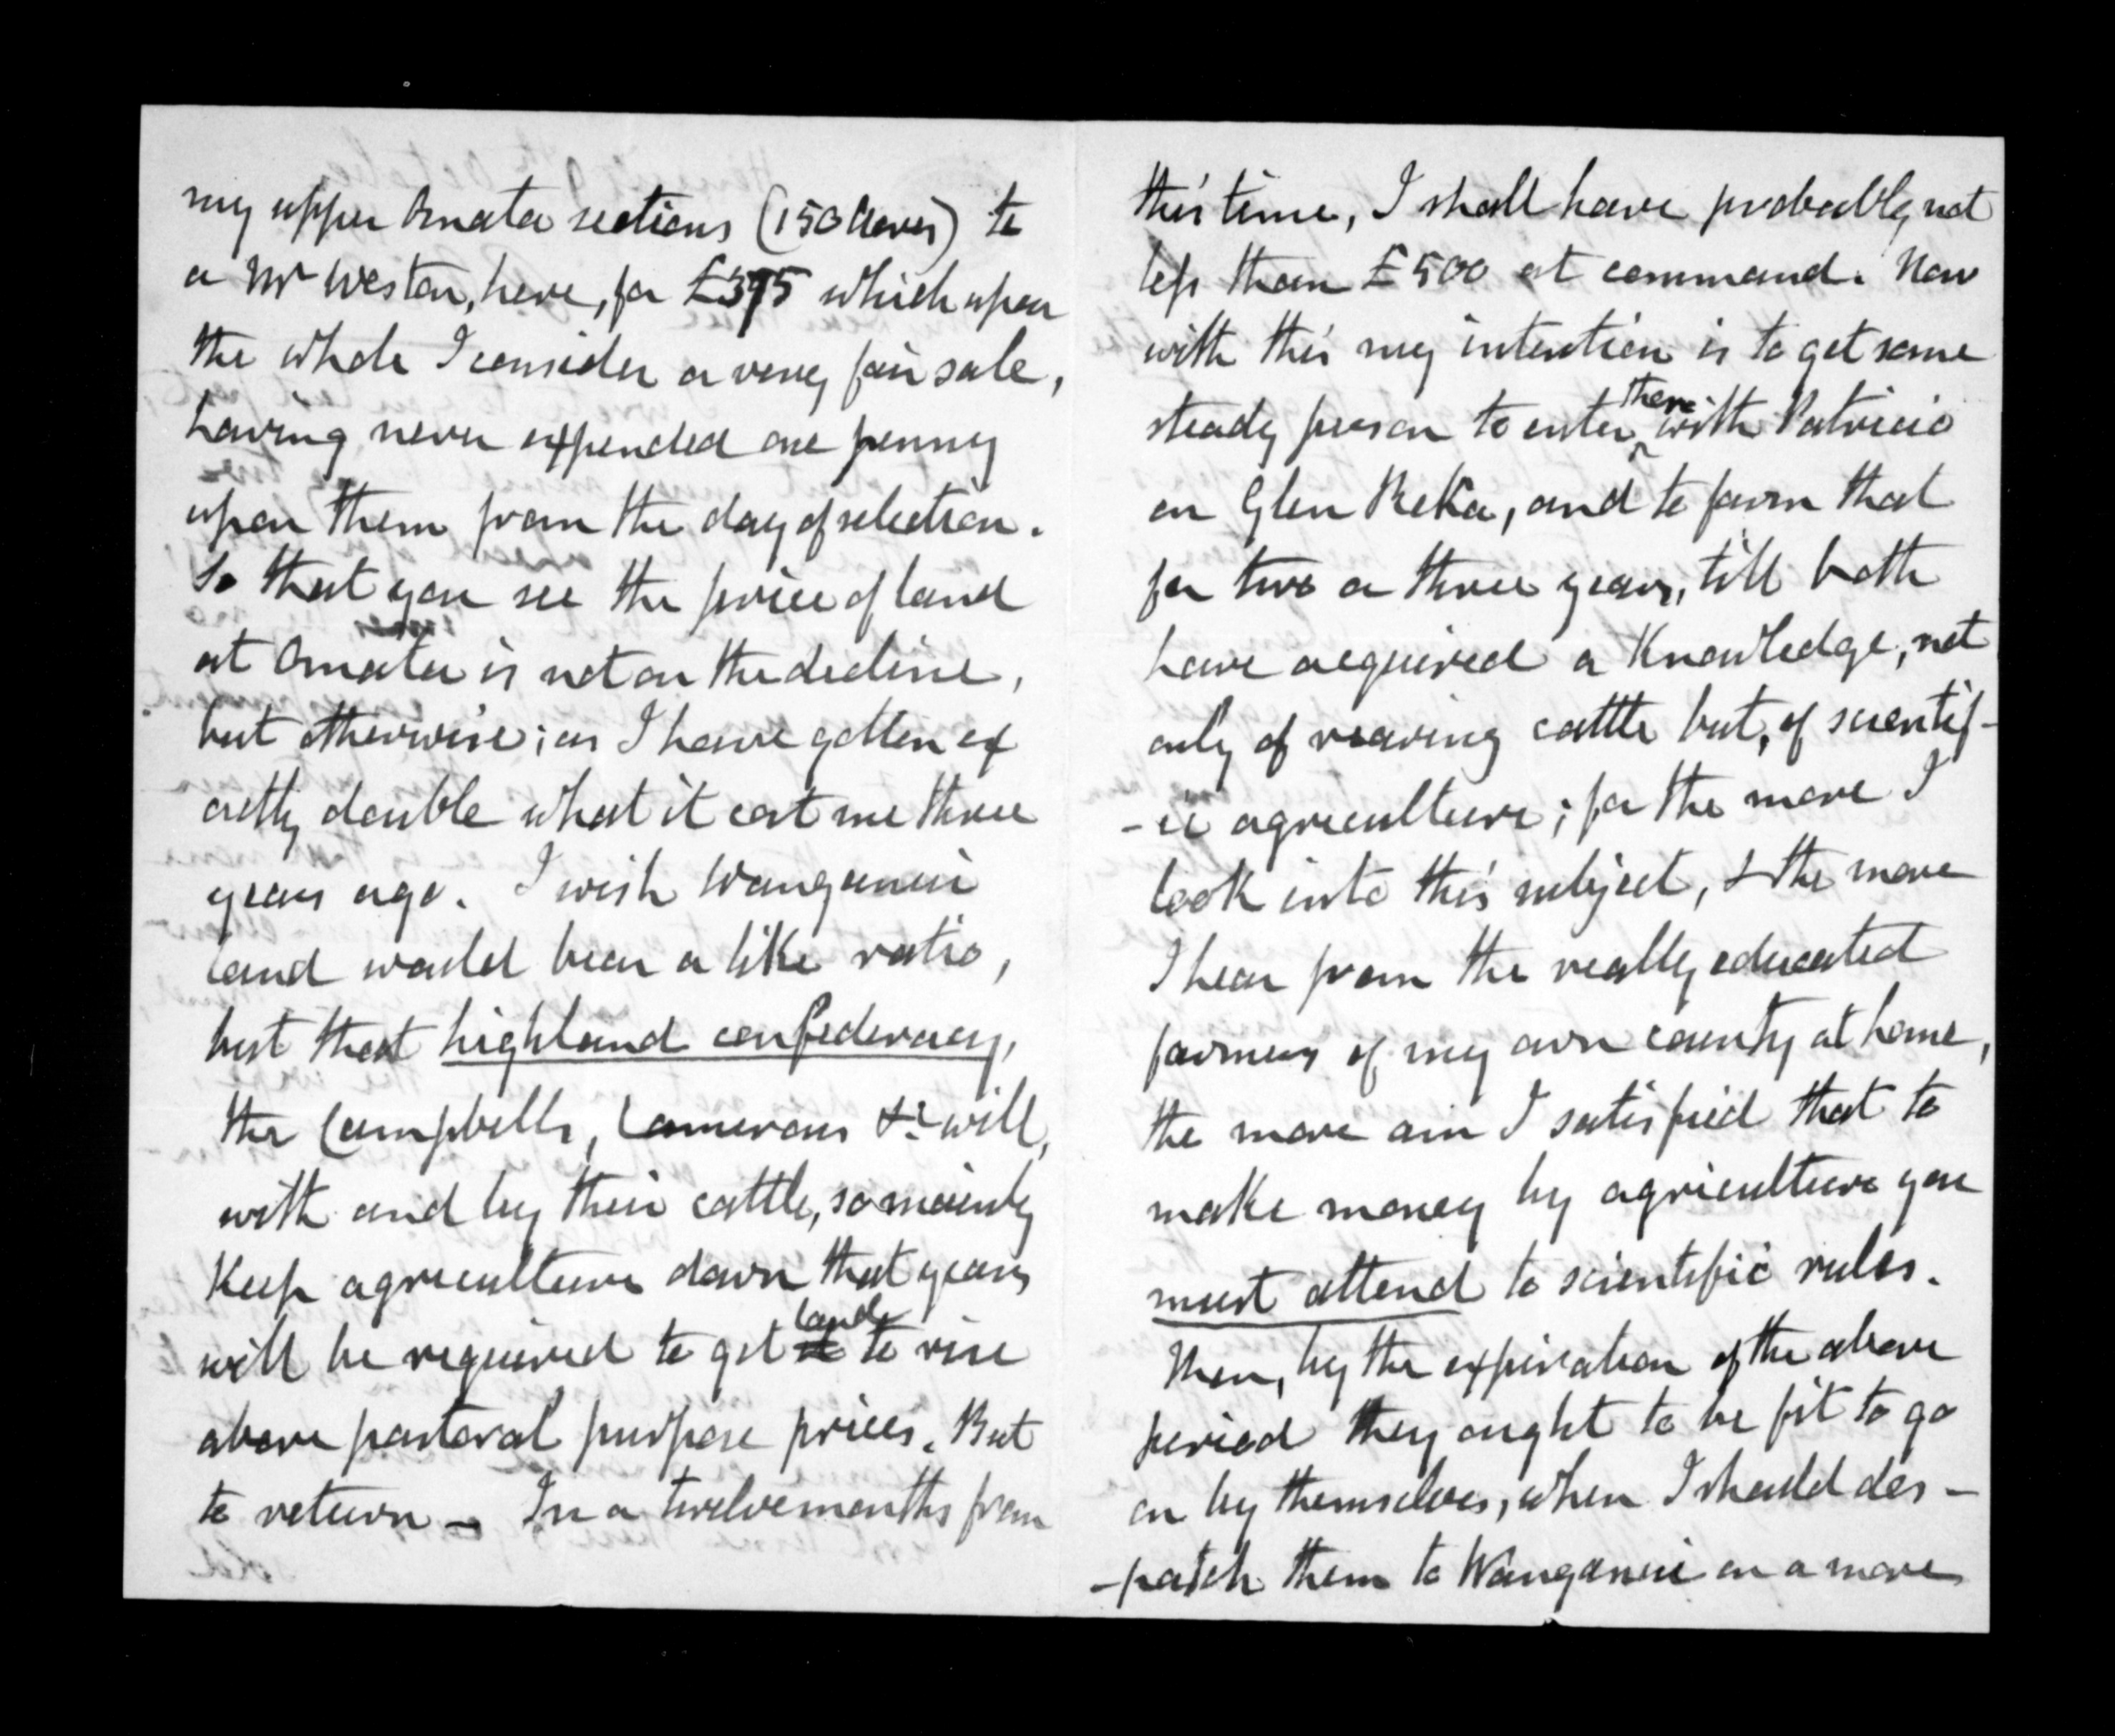 my upper Omata sections (150 Acres) to
a Mr Weston, here, for £375 which upon
the whole I consider a very fair sale,
having never expended one penny
upon them from the day of selection.
So that you see the price of land
at Omata is not on the decline,
but otherwise; as I have gotten ex
actly double what it cost me three
years ago. I wish Wanganui
land would bear a like ratio,
but that highland confederacy,
the Campbells, Camerons &c will,
with and by their cattle, so mainly
keep agriculture down that years
will be required to get land to rise
above pastoral purpose prices. But
to return – In a twelvemonths from
this time, I shall have probably not
less than £500 at command. Now
with this my intention is to get some
steady person to enter there with Patricio
on Glen Reka, and to farm that
for two or three years, till both
have acquired a Knowledge, not
only of rearing cattle but, of scientif-
-ic agriculture; for the more I
look into this subject, & the more
I hear from the really educated
farmers of my own county at home,
the more am I satisfied that to
make money by agriculture you
must attend to scientific rules.
Then, by the expiration of the above
period they ought to be fit to go
on by themselves, when I should des-
-patch them to Wanganui on a more